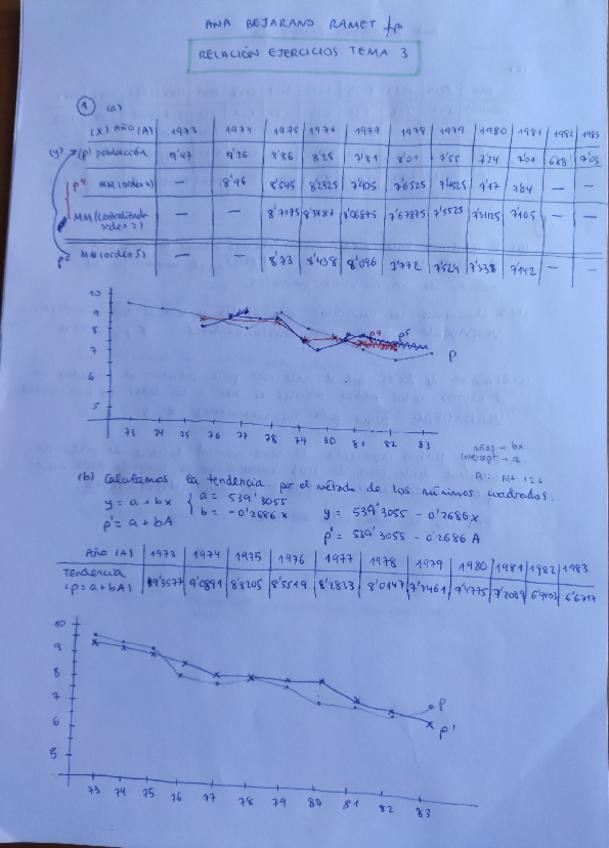 ANA BEJARANO RAMET
RELACIÓN EJERCICIOS TEMA 3
1 (a)
(X) AÑO (A) 1973 1974 1975 1976 1977 1978 1979 1980 1981 1982 1983
(y) (p) población 9'47 9'26 8'86 8'25 7'81 8'01 7'55 7'24 7'01 6'88 7'03
P4 MM (orden 4) — 8'96 8'545 8'2325 7'905 7'6525 7'4525 7'17 7'04 — —
MM (centralizada orden 2) — — 8'7175 8'3887 8'06875 7'67875 7'5525 7'31125 7'105 — —
P5 MM (orden 5) — — 8'73 8'438 8'096 7'772 7'524 7'338 7'142 — —
10
9
8
7
6
5
P4 P5
P
73 74 75 76 77 78 79 80 81 82 83
años → bx
Intercept → a
(b) Calculamos la tendencia por el método de los mínimos cuadrados.
y = a + bx { a = 539'3055 y = 539'3055 - 0'2686x
p' = a + bA b = -0'2686 x p' = 539'3055 - 0'2686 A
Año (A) 1973 1974 1975 1976 1977 1978 1979 1980 1981 1982 1983
Tendencia (p = a + bA) 9'3577 9'0891 8'8205 8'5519 8'2833 8'0147 7'7461 7'4775 7'2089 6'9403 6'6717
10
9
8
7
6
5
P
P'
73 74 75 76 77 78 79 80 81 82 83